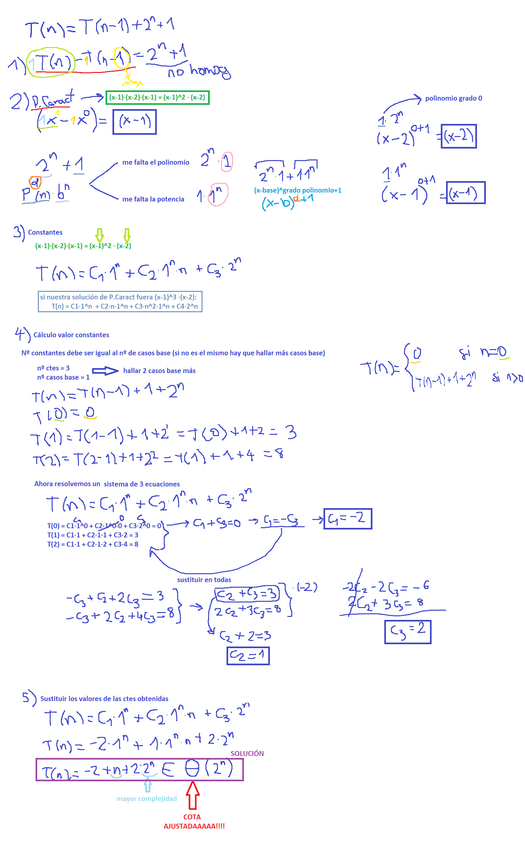 T(n) = T(n-1) + 2^n + 1
1) 1T(n) - 1T(n-1) = 2^n + 1
no homog
2) P.Caract → (x-1)·(x-2)·(x-1) = (x-1)^2 · (x-2)
(1x^1 - 1x^0) = (x-1)
polinomio grado 0
1·2^n
(x-2)^0+1 = (x-2)
2^n + 1
P^d(n)·b^n
me falta el polinomio 2^n·1
me falta la potencia 1·1^n
2^n·1 + 1·1^n
(x-base)^grado polinomio+1
(x-b)^d+1
1·1^n
(x-1)^0+1 = (x-1)
3) Constantes
(x-1)·(x-2)·(x-1) = (x-1)^2 · (x-2)
T(n) = C1·1^n + C2·1^n·n + C3·2^n
si nuestra solución de P.Caract fuera (x-1)^3 ·(x-2):
T(n) = C1·1^n + C2·n·1^n + C3·n^2·1^n + C4·2^n
4) Cálculo valor constantes
Nº constantes debe ser igual al nº de casos base (si no es el mismo hay que hallar más casos base)
nº ctes = 3
nº casos base = 1
hallar 2 casos base más
T(n) = { 0 si n=0
T(n-1)+1+2^n si n>0
T(n) = T(n-1) + 1 + 2^n
T(0) = 0
T(1) = T(1-1) + 1 + 2^1 = T(0) + 1 + 2 = 3
T(2) = T(2-1) + 1 + 2^2 = T(1) + 1 + 4 = 8
Ahora resolvemos un sistema de 3 ecuaciones
T(n) = C1·1^n + C2·1^n·n + C3·2^n
T(0) = C1·1^0 + C2·1^0·0 + C3·2^0 = 0
T(1) = C1·1 + C2·1·1 + C3·2 = 3
T(2) = C1·1 + C2·1·2 + C3·4 = 8
→ C1+C3=0 → C1=-C3 → C1=-2
sustituir en todas
-C3 + C2 + 2C3 = 3
-C3 + 2C2 + 4C3 = 8
C2 + C3 = 3
2C2 + 3C3 = 8
·(-2)
C2 + 2 = 3
C2 = 1
-2C2 - 2C3 = -6
2C2 + 3C3 = 8
C3 = 2
5) Sustituir los valores de las ctes obtenidas
T(n) = C1·1^n + C2·1^n·n + C3·2^n
T(n) = -2·1^n + 1·1^n·n + 2·2^n
SOLUCIÓN
T(n) = -2 + n + 2·2^n ∈ Θ(2^n)
mayor complejidad
COTA
AJUSTADAAAAA!!!!